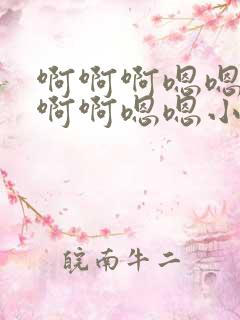 啊啊啊嗯嗯
啊啊嗯嗯小
皖南牛二